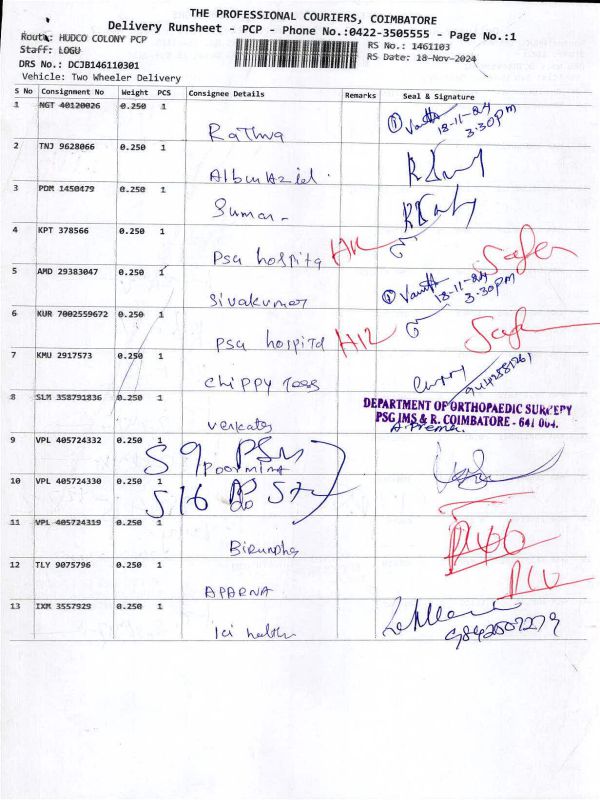 THE PROFESSIONAL COURIERS, COIMBATORE
Delivery Runsheet - PCP - Phone No.:0422-3505555 - Page No.:1
Route: HUDCO COLONY PCP
RS No.: 1461103
Staff: LOGU
RS Date: 18-Nov-2024
DRS No.: DCJB146110301
Vehicle: Two Wheeler Delivery
S No Consignment No Weight PCS Consignee Details Remarks Seal & Signature
1 NGT 40120026 0.250 1
18-11-24
3.30pm
Rathna
2 TNJ 9628066 0.250 1
3 PDM 1450479 0.250 1
Suman
4 KPT 378566 0.250 1
Psg hospital
Safer
5 AMD 29383047 0.250 1
18-11-24
3.30pm
Sivakumar
6 KUR 7002559672 0.250 1
Psg hospital
7 KMU 2917573 0.250 1
chippy
8 SLM 358791836 0.250 1
DEPARTMENT OF ORTHOPAEDIC SURGERY
PSG IMS & R. COIMBATORE - 641 004.
A. Prema
Venkates
9 VPL 405724332 0.250 1
S9 PSM
Poornima
10 VPL 405724330 0.250 1
S16
11 VPL 405724319 0.250 1
12 TLY 9075796 0.250 1
APARNA
13 IXM 3557929 0.250 1
9842507279